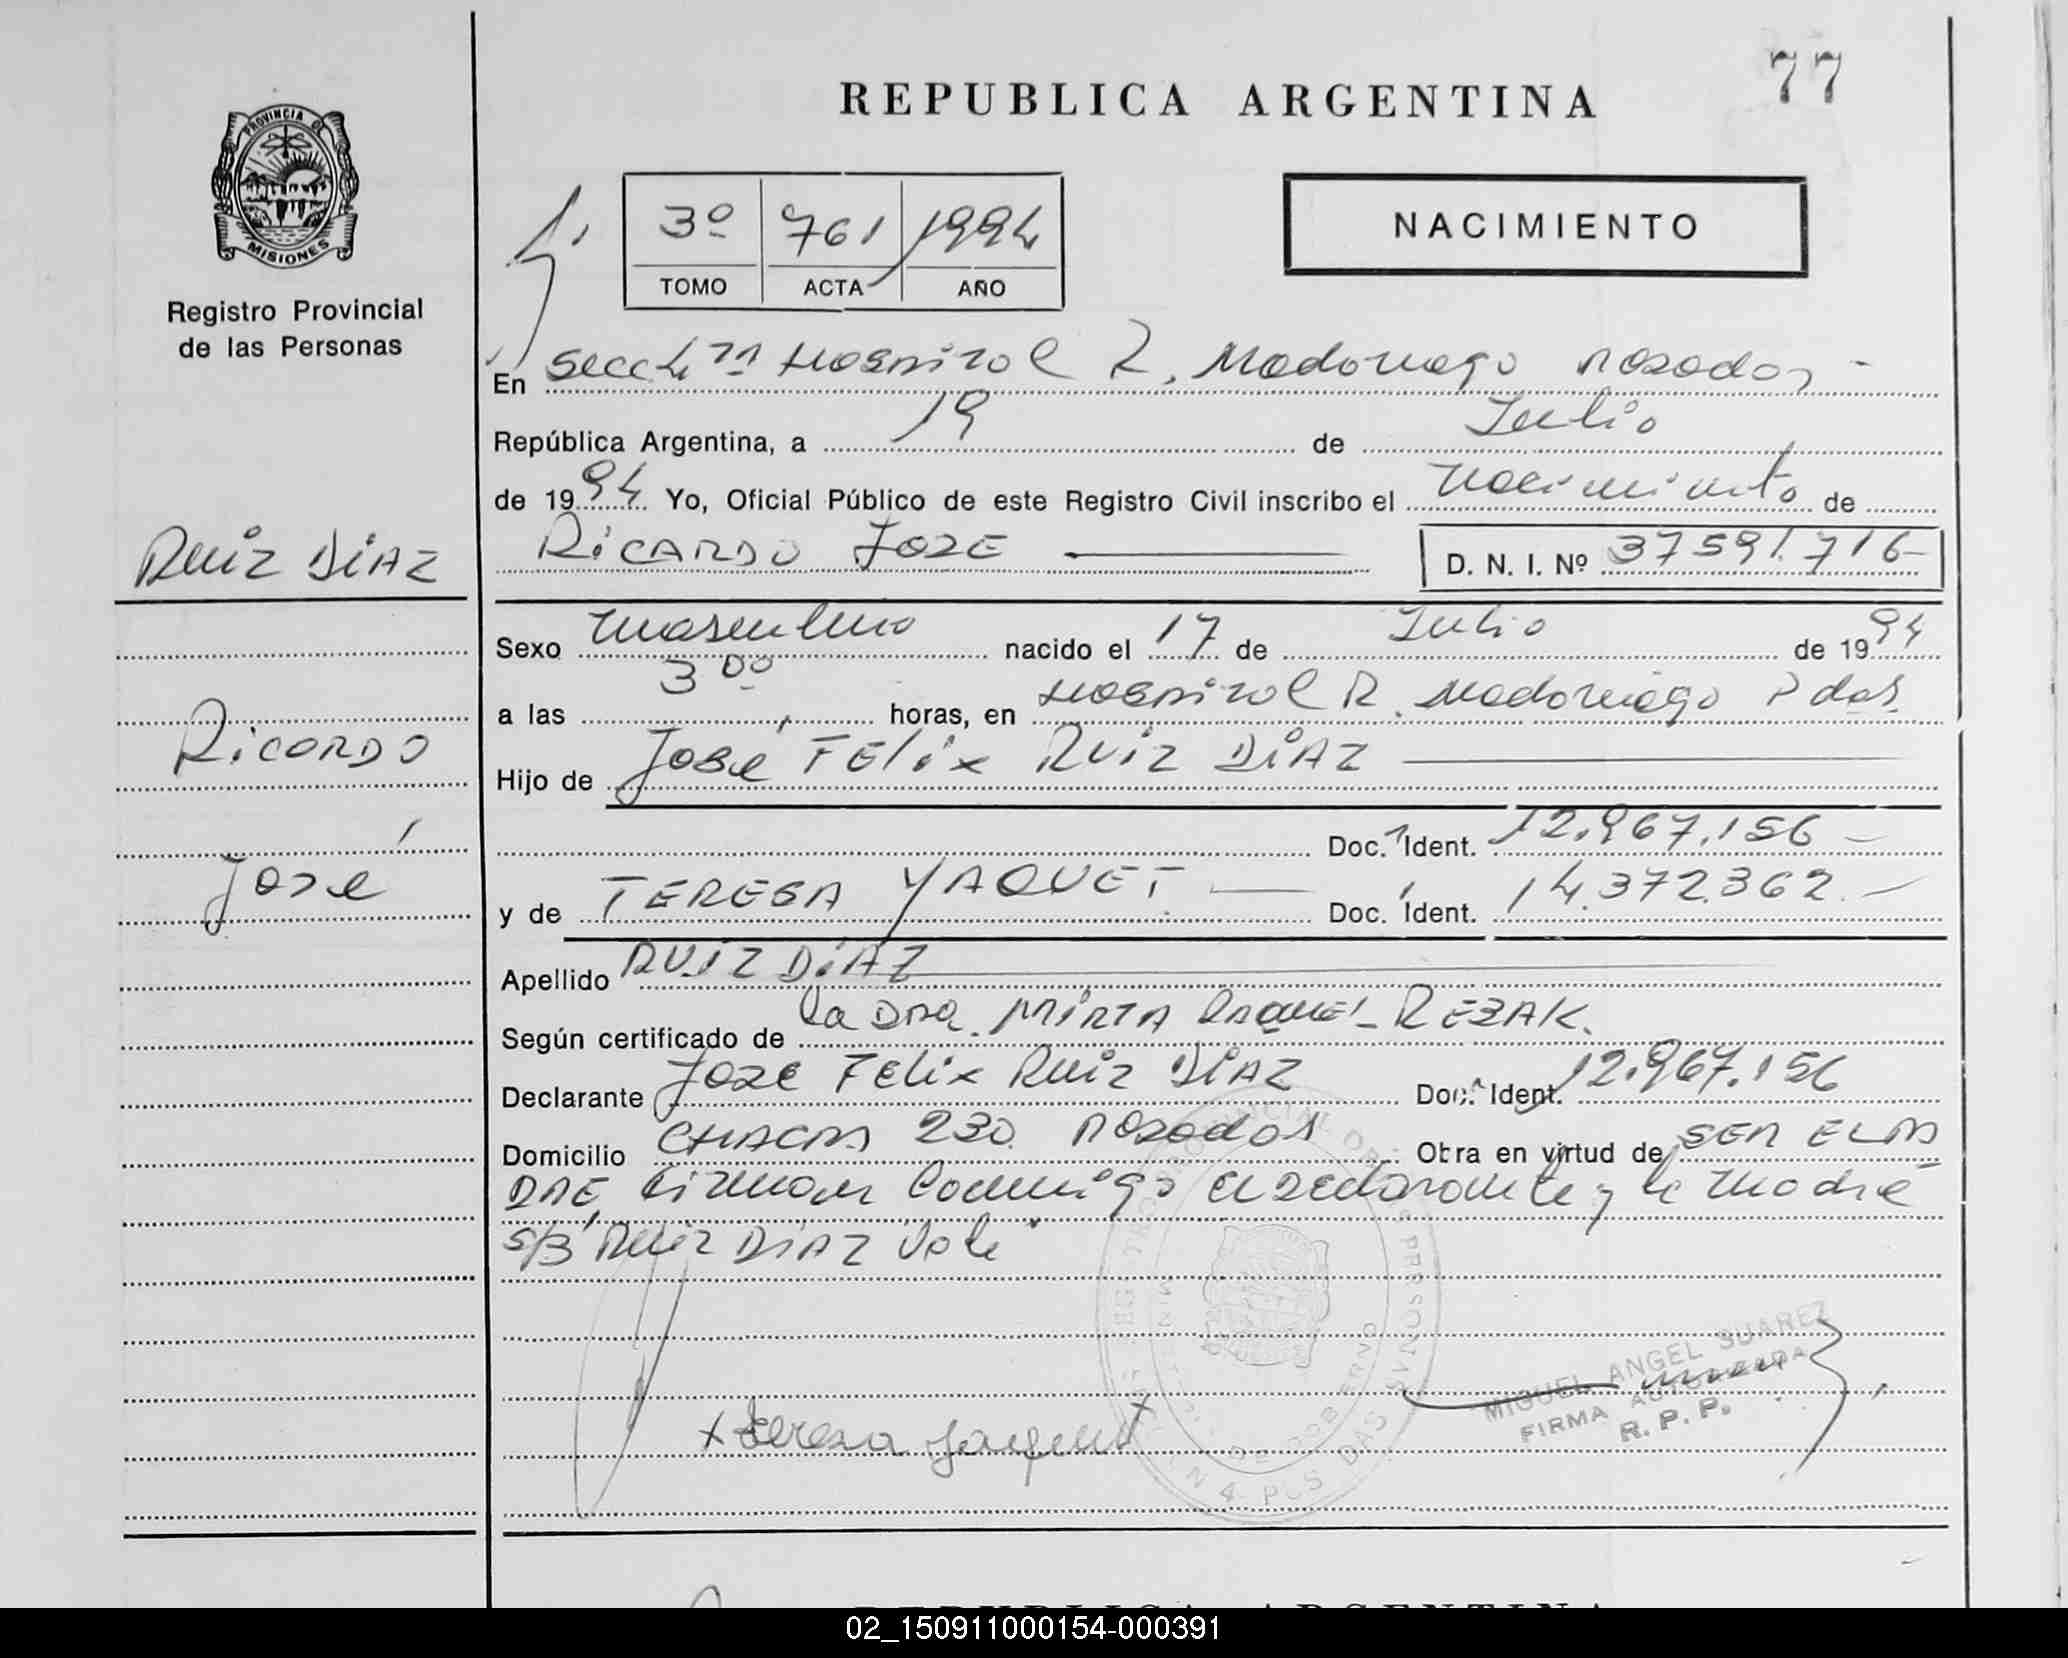 77
REPUBLICA ARGENTINA
PROVINCIA DE
MISIONES
Registro Provincial
de las Personas
3º 761 1994
TOMO ACTA AÑO
NACIMIENTO
En Secc 4 Hospital R. Madariaga Posadas -
República Argentina, a 19 de Julio
de 1994 Yo, Oficial Público de este Registro Civil inscribo el Nacimiento de
RICARDO JOSE D. N. I. Nº 37591.716-
RUIZ DIAZ
Ricardo
José
Sexo Masculino nacido el 17 de Julio de 1994
a las 3 00 horas, en Hospital R. Madariaga Pdas.
Hijo de José FELIX RUIZ DIAZ
Doc. Ident. 12.967.156-
y de TERESA YAQUET. Doc. Ident. 14.372.362.-
Apellido RUIZ DIAZ
Según certificado de la DRA. MIRTA RAQUEL REZAK.
Declarante JOSE FELIX RUIZ DIAZ Doc. Ident. 12.967.156
Domicilio CHACRA 230 Posadas Otra en virtud de SER EL PA
DRE, Firman Conmigo el declarante y la Madre
S/B RUIZ DIAZ Vale
MIGUEL ANGEL SUAREZ
FIRMA AUTORIZADA
R. P. P.
Teresa Yaquet
REPUBLICA ARGENTINA
02_150911000154-000391